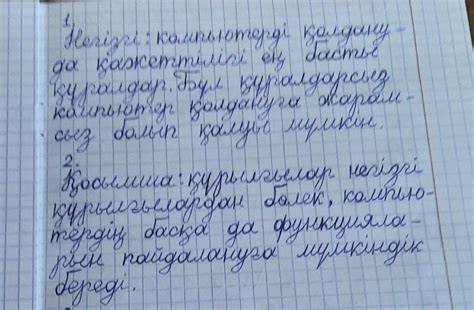 1.
Негізгі: компьютерді қолдану-
да қажеттілігі ең басты
құралдар. Бұл құралдарсыз
компьютер қолдануға жарам-
сыз болып қалуы мүмкін.
2.
Қосымша: құрылғылар негізгі
құрылғылардан бөлек, компью-
тердің басқа да функцияла-
рын пайдалануға мүмкіндік
береді.